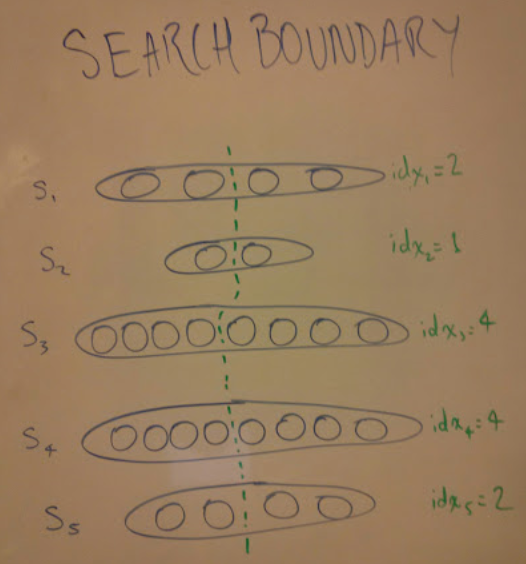 SEARCH BOUNDARY
S₁ idx₁=2
S₂ idx₂=1
S₃ idx₃=4
S₄ idx₄=4
S₅ idx₅=2